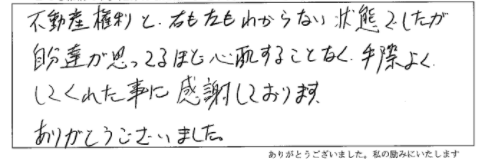 不動産権利と、右も左もわからない状態でしたが
自分達が思ってるほど心配することなく、手際よく
してくれた事に感謝しております。
ありがとうございました。
ありがとうございました。私の励みにいたします